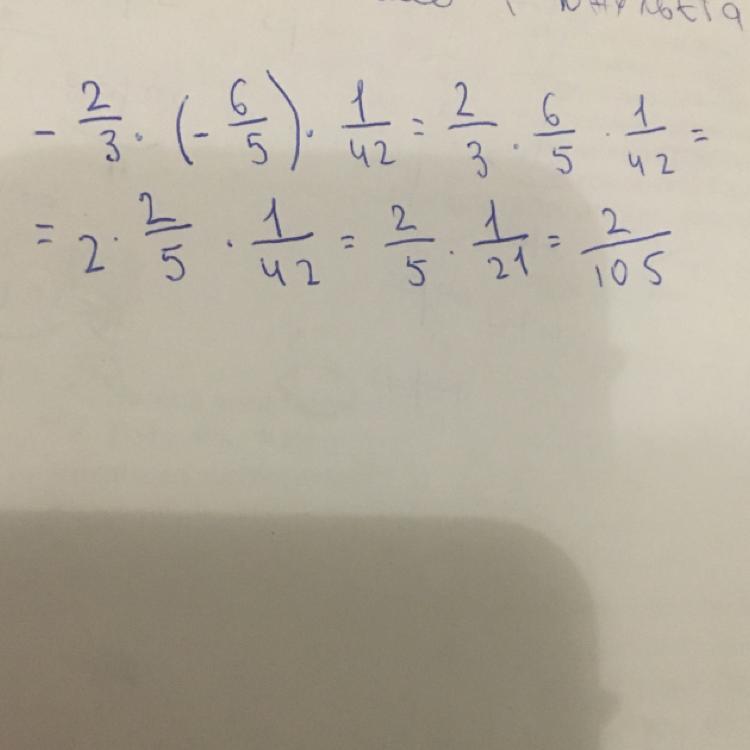 - 2/3 · (- 6/5) · 1/42 = 2/3 · 6/5 · 1/42 =
= 2 · 2/5 · 1/42 = 2/5 · 1/21 = 2/105